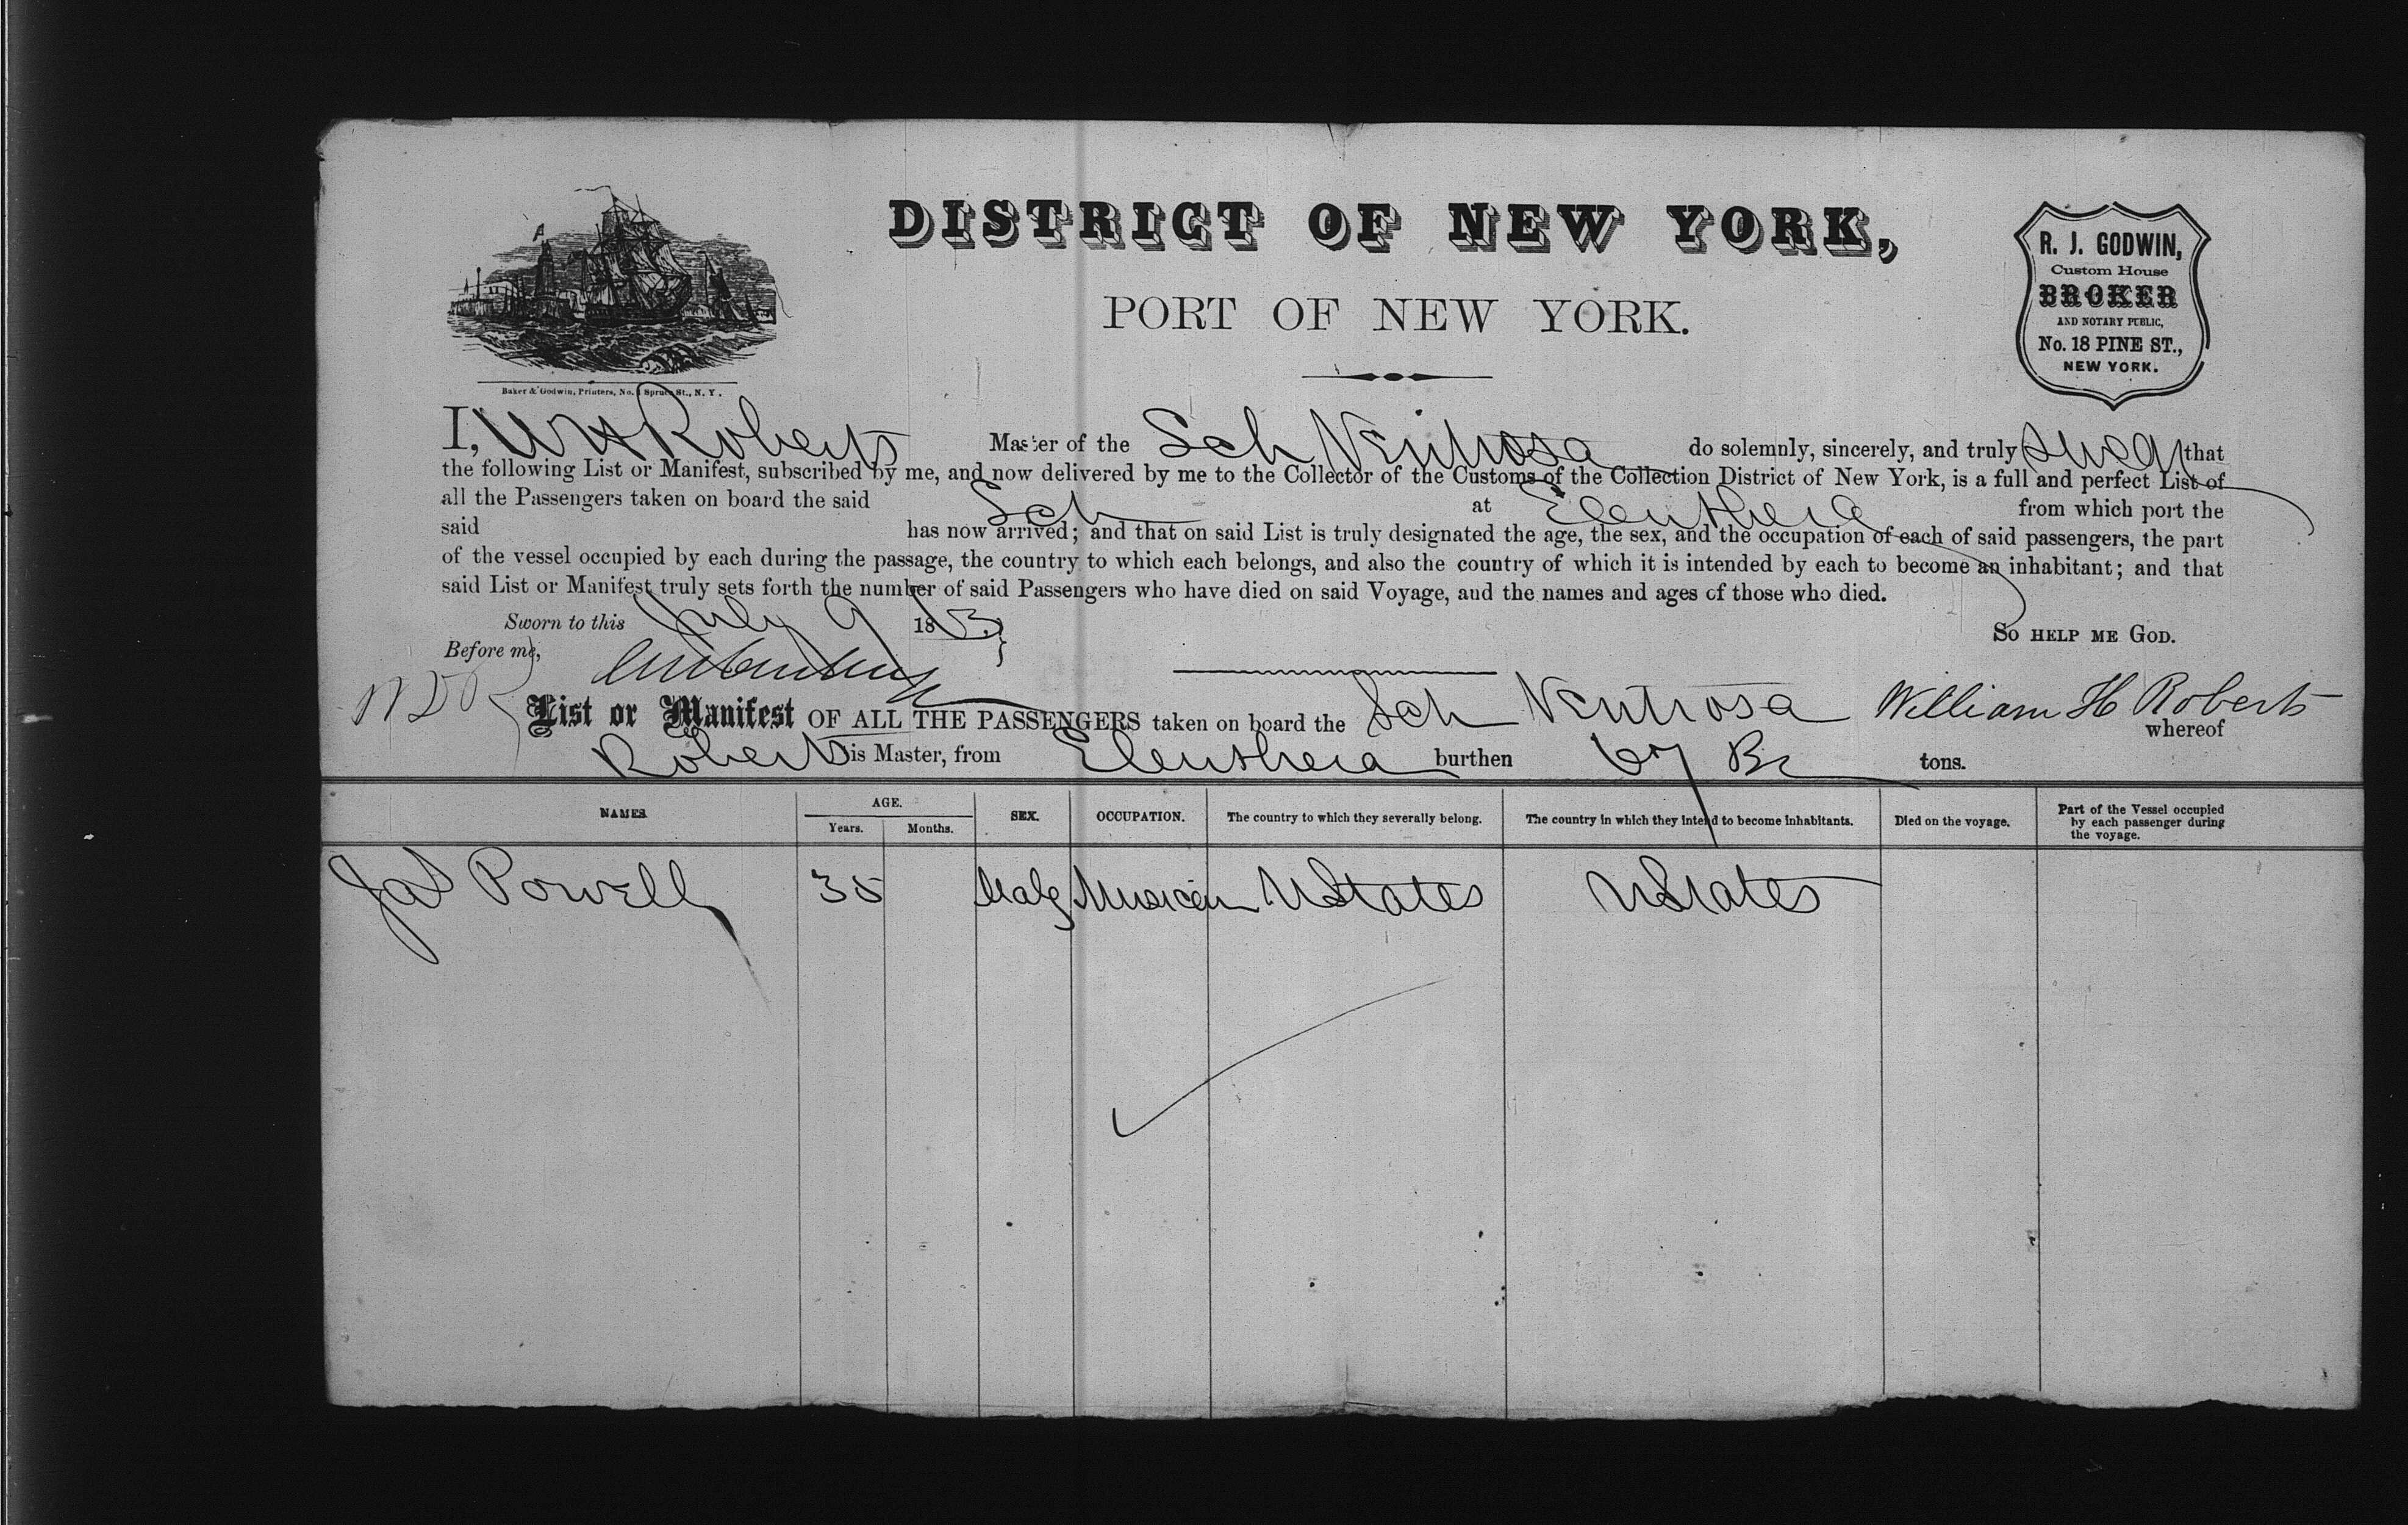 DISTRICT OF NEW YORK,
PORT OF NEW YORK.
R. J. GODWIN,
Custom House
BROKER
AND NOTARY PUBLIC,
No. 18 PINE ST.,
NEW YORK.
Baker & Godwin, Printers, No. 1 Spruce St., N. Y.
I, W H Roberts Master of the Sch Ventrosa do solemnly, sincerely, and truly swear that
the following List or Manifest, subscribed by me, and now delivered by me to the Collector of the Customs of the Collection District of New York, is a full and perfect List of
all the Passengers taken on board the said Sch at Eleuthera from which port the
said has now arrived; and that on said List is truly designated the age, the sex, and the occupation of each of said passengers, the part
of the vessel occupied by each during the passage, the country to which each belongs, and also the country of which it is intended by each to become an inhabitant; and that
said List or Manifest truly sets forth the number of said Passengers who have died on said Voyage, and the names and ages of those who died.
Sworn to this July 9 18 SO HELP ME GOD.
Before me,
William H Roberts
List or Manifest OF ALL THE PASSENGERS taken on board the Sch Ventrosa whereof
Roberts is Master, from Eleuthera burthen 67 tons.
NAMES. AGE. SEX. OCCUPATION. The country to which they severally belong. The country in which they intend to become inhabitants. Died on the voyage. Part of the Vessel occupied by each passenger during the voyage.
Years. Months.
Jas Powell 35 Male Musician UStates UStates